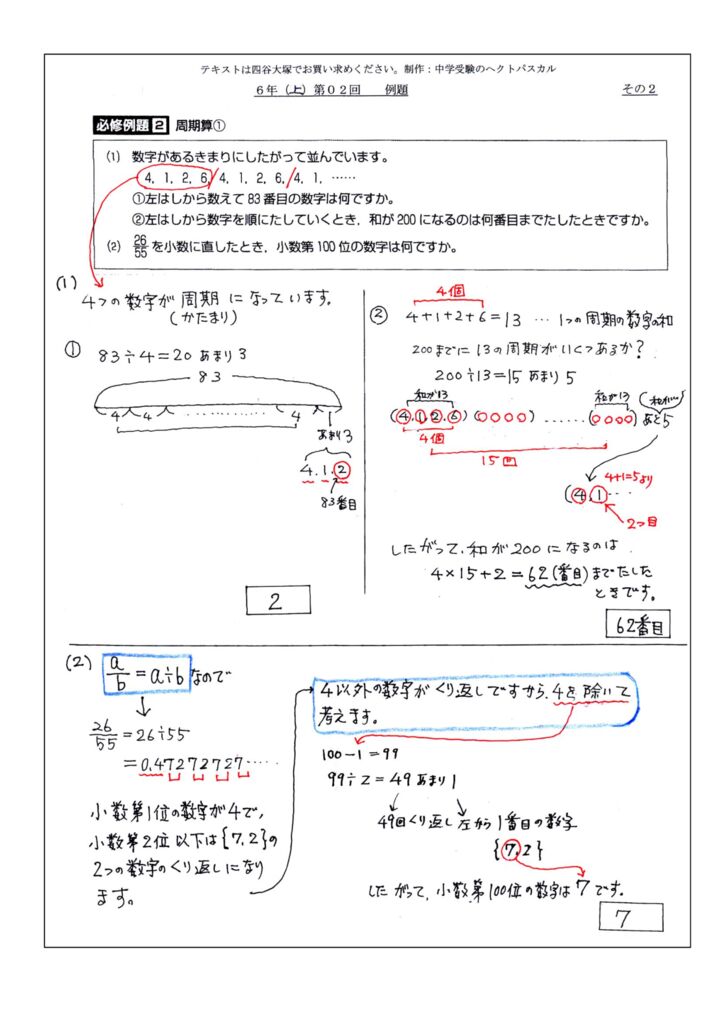 テキストは四谷大塚でお買い求めください。制作：中学受験のヘクトパスカル
6年（上）第02回　例題　その2
必修例題2 周期算①
(1) 数字があるきまりにしたがって並んでいます。
4, 1, 2, 6, 4, 1, 2, 6, 4, 1, ……
①左はしから数えて83番目の数字は何ですか。
②左はしから数字を順にたしていくとき，和が200になるのは何番目までたしたときですか。
(2) 26/55を小数に直したとき，小数第100位の数字は何ですか。
(1)
4つの数字が周期になっています。
(かたまり)
① 83÷4=20あまり3
83
4 4 ………… 4
あまり3
4.1.2
83番目
2
4個
② 4+1+2+6=13 … 1つの周期の数字の和
200までに13の周期がいくつあるか？
200÷13=15あまり5
和が13 和が13 (和が…)
(4.1.2.6)(○○○○)……(○○○○)あと5
4個
15回
4+1=5より
(4.1…
2つ目
したがって、和が200になるのは
4×15+2=62(番目)までたした
ときです。
62番目
(2) a/b=a÷bなので
26/55=26÷55
=0.47272727……
小数第1位の数字が4で，
小数第2位以下は{7.2}の
2つの数字のくり返しになり
ます。
4以外の数字がくり返しですから，4を除いて
考えます。
100-1=99
99÷2=49あまり1
49回くり返し 左から1番目の数字
{7.2}
したがって，小数第100位の数字は7です。
7